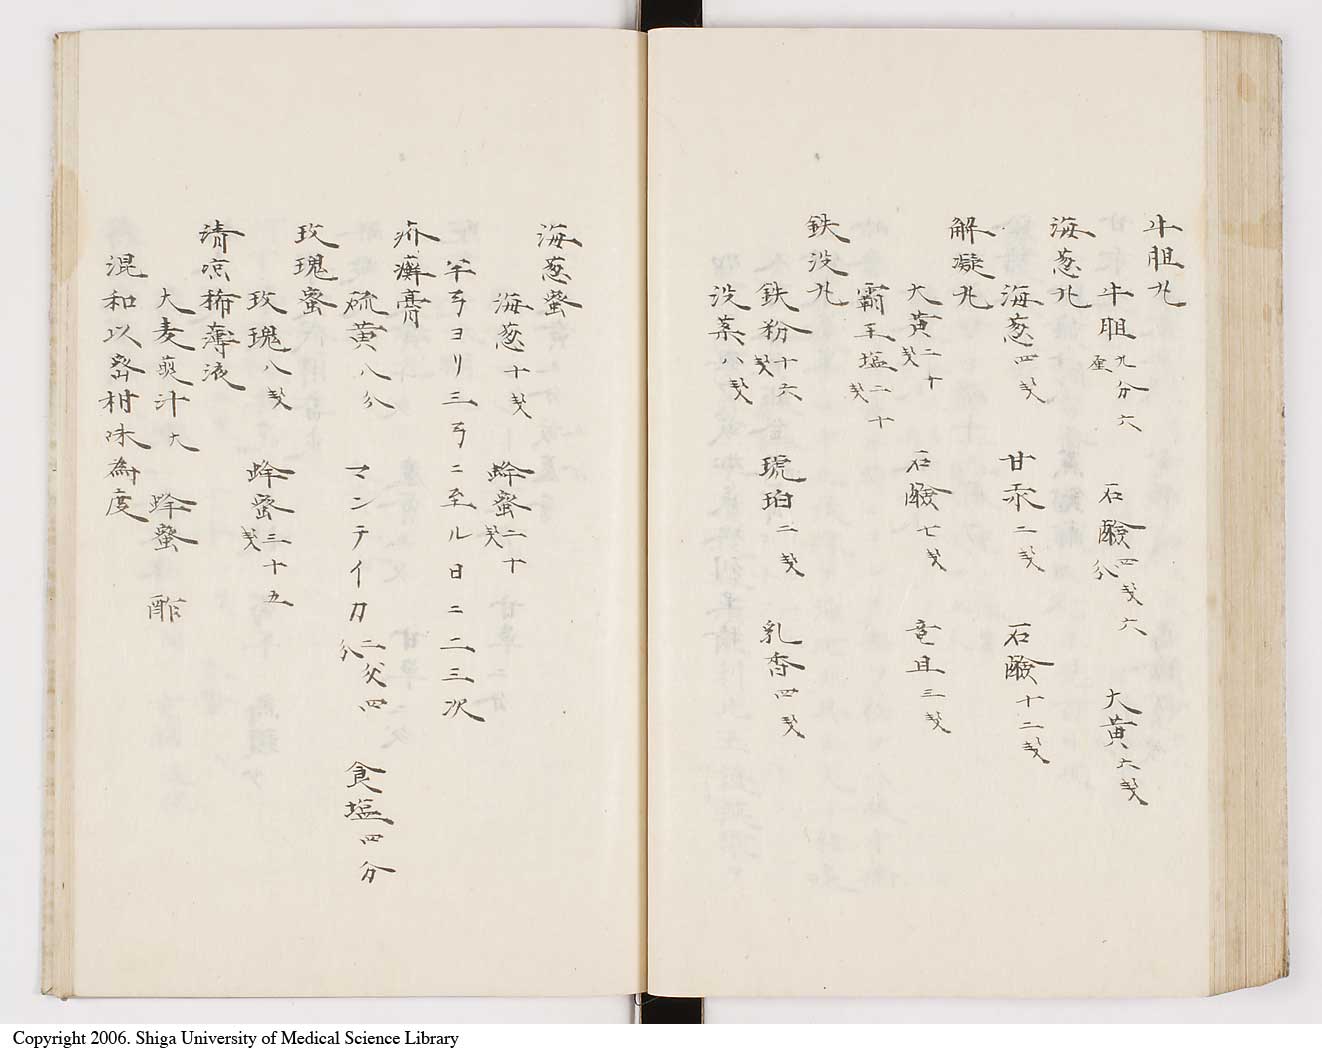 牛胆丸
牛胆九分六厘 石鹸四戔六分 大黄六戔
海葱丸
海葱四戔 甘汞二戔 石鹸十二戔
解凝丸
大黄二十戔 石鹸七戔 竜且三戔
覇王塩二十戔
鉄没丸
鉄粉十六戔 琥珀二戔 乳香四戔
没薬八戔
海葱蜜
海葱十戔 蜂蜜二十戔
半弓ヨリ三弓ニ至ル日ニ二三次
疥癬膏
硫黄八分 マンテイカ二戔四分 食塩四分
玫瑰蜜
玫瑰八戔 蜂蜜三十五戔
清凉稀薄液
大麦煎汁大 蜂蜜 酢
混和以蜜柑味為度
Copyright 2006. Shiga University of Medical Science Library